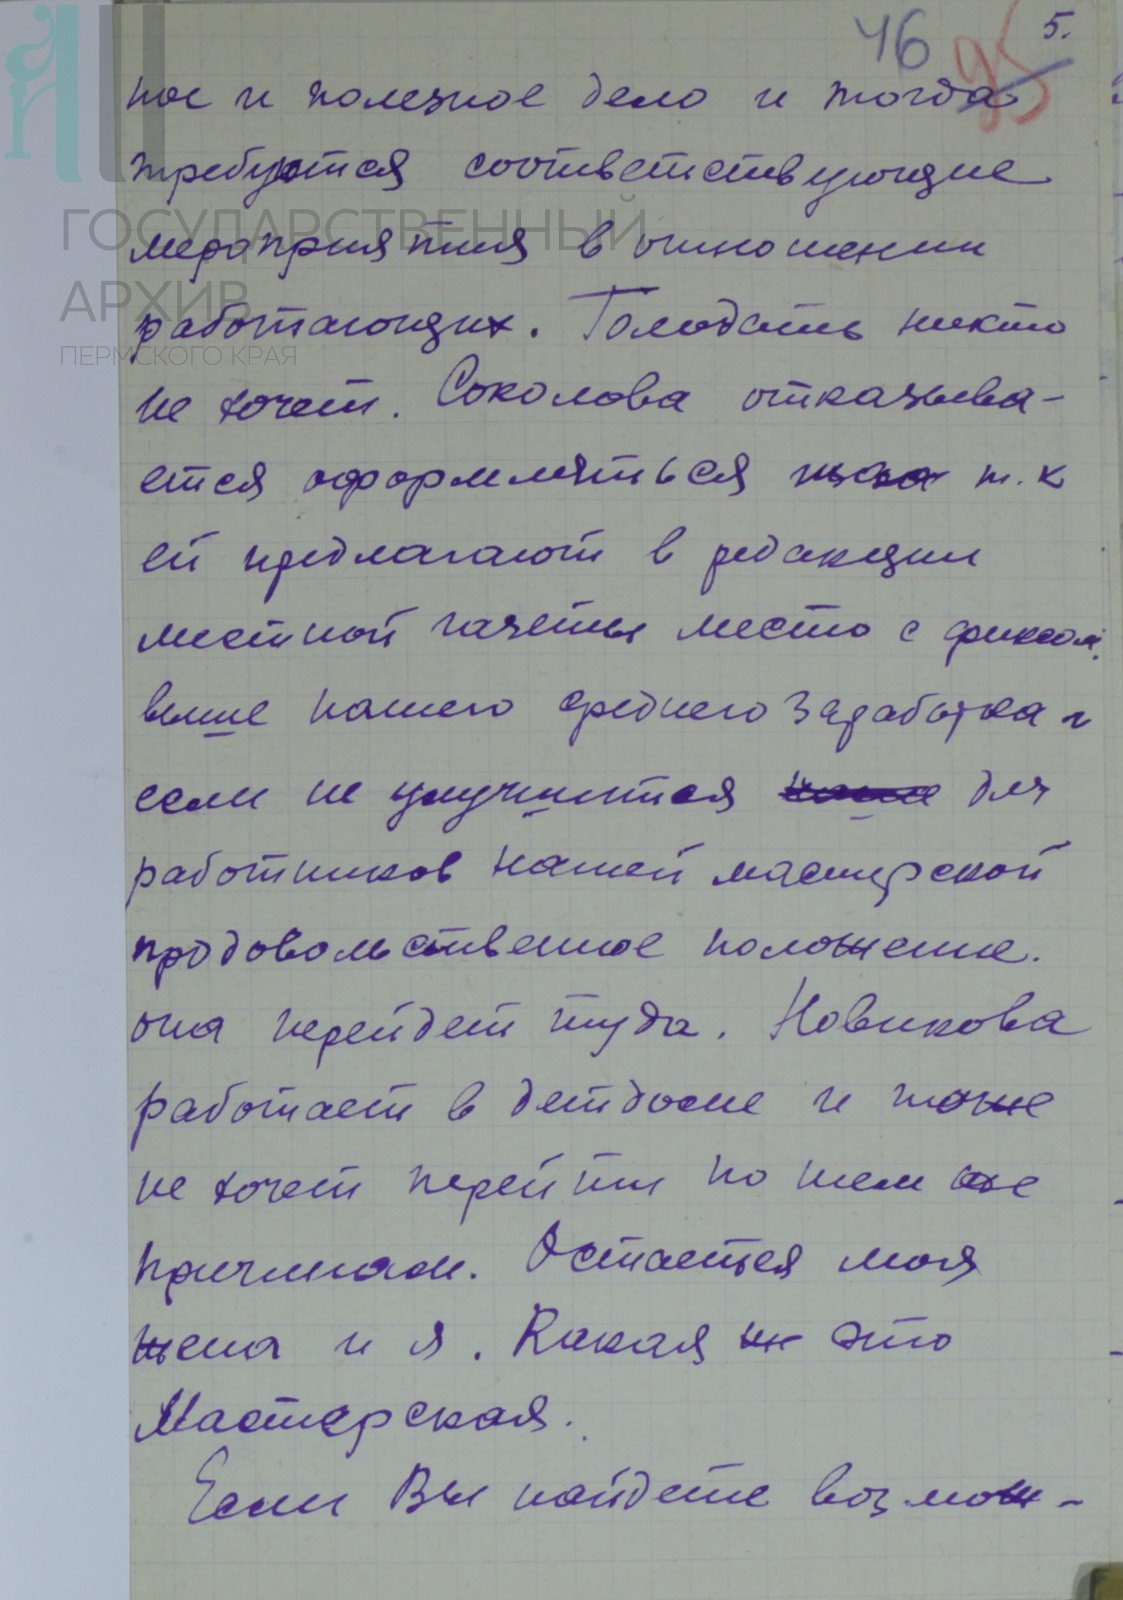 46 95 5.
ное и полезное дело и тогда
требуются соответствующие
мероприятия в отношении
работающих. Голодать никто
не хочет. Соколова отказыва-
ется оформляться т. к
ей предлагают в редакции
местной газеты место с фиксом
выше нашего среднего заработка и
если не улучшится для
работников нашей мастерской
продовольственное положение.
она перейдет туда. Новикова
работает в детдоме и тоже
не хочет перейти по тем же
причинам. Остается моя
жена и я. Какая ж это
Мастерская.
Если Вы найдете возмож-
ГОСУДАРСТВЕННЫЙ
АРХИВ
ПЕРМСКОГО КРАЯ